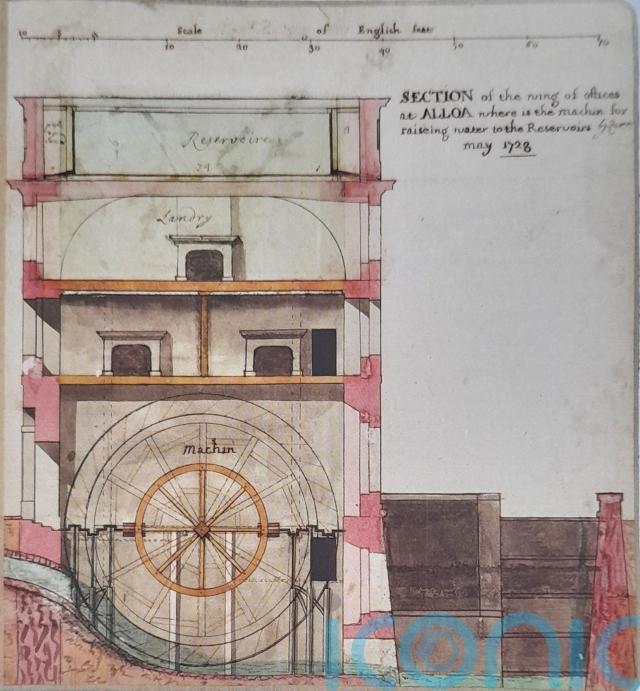 Scale of English feet
10 5 10 20 30 40 50 60 70
SECTION of the wing of offices
at ALLOA where is the machin for
raiseing water to the Reservoirs
may 1728
Reservoire
Landry
Machin
iconic